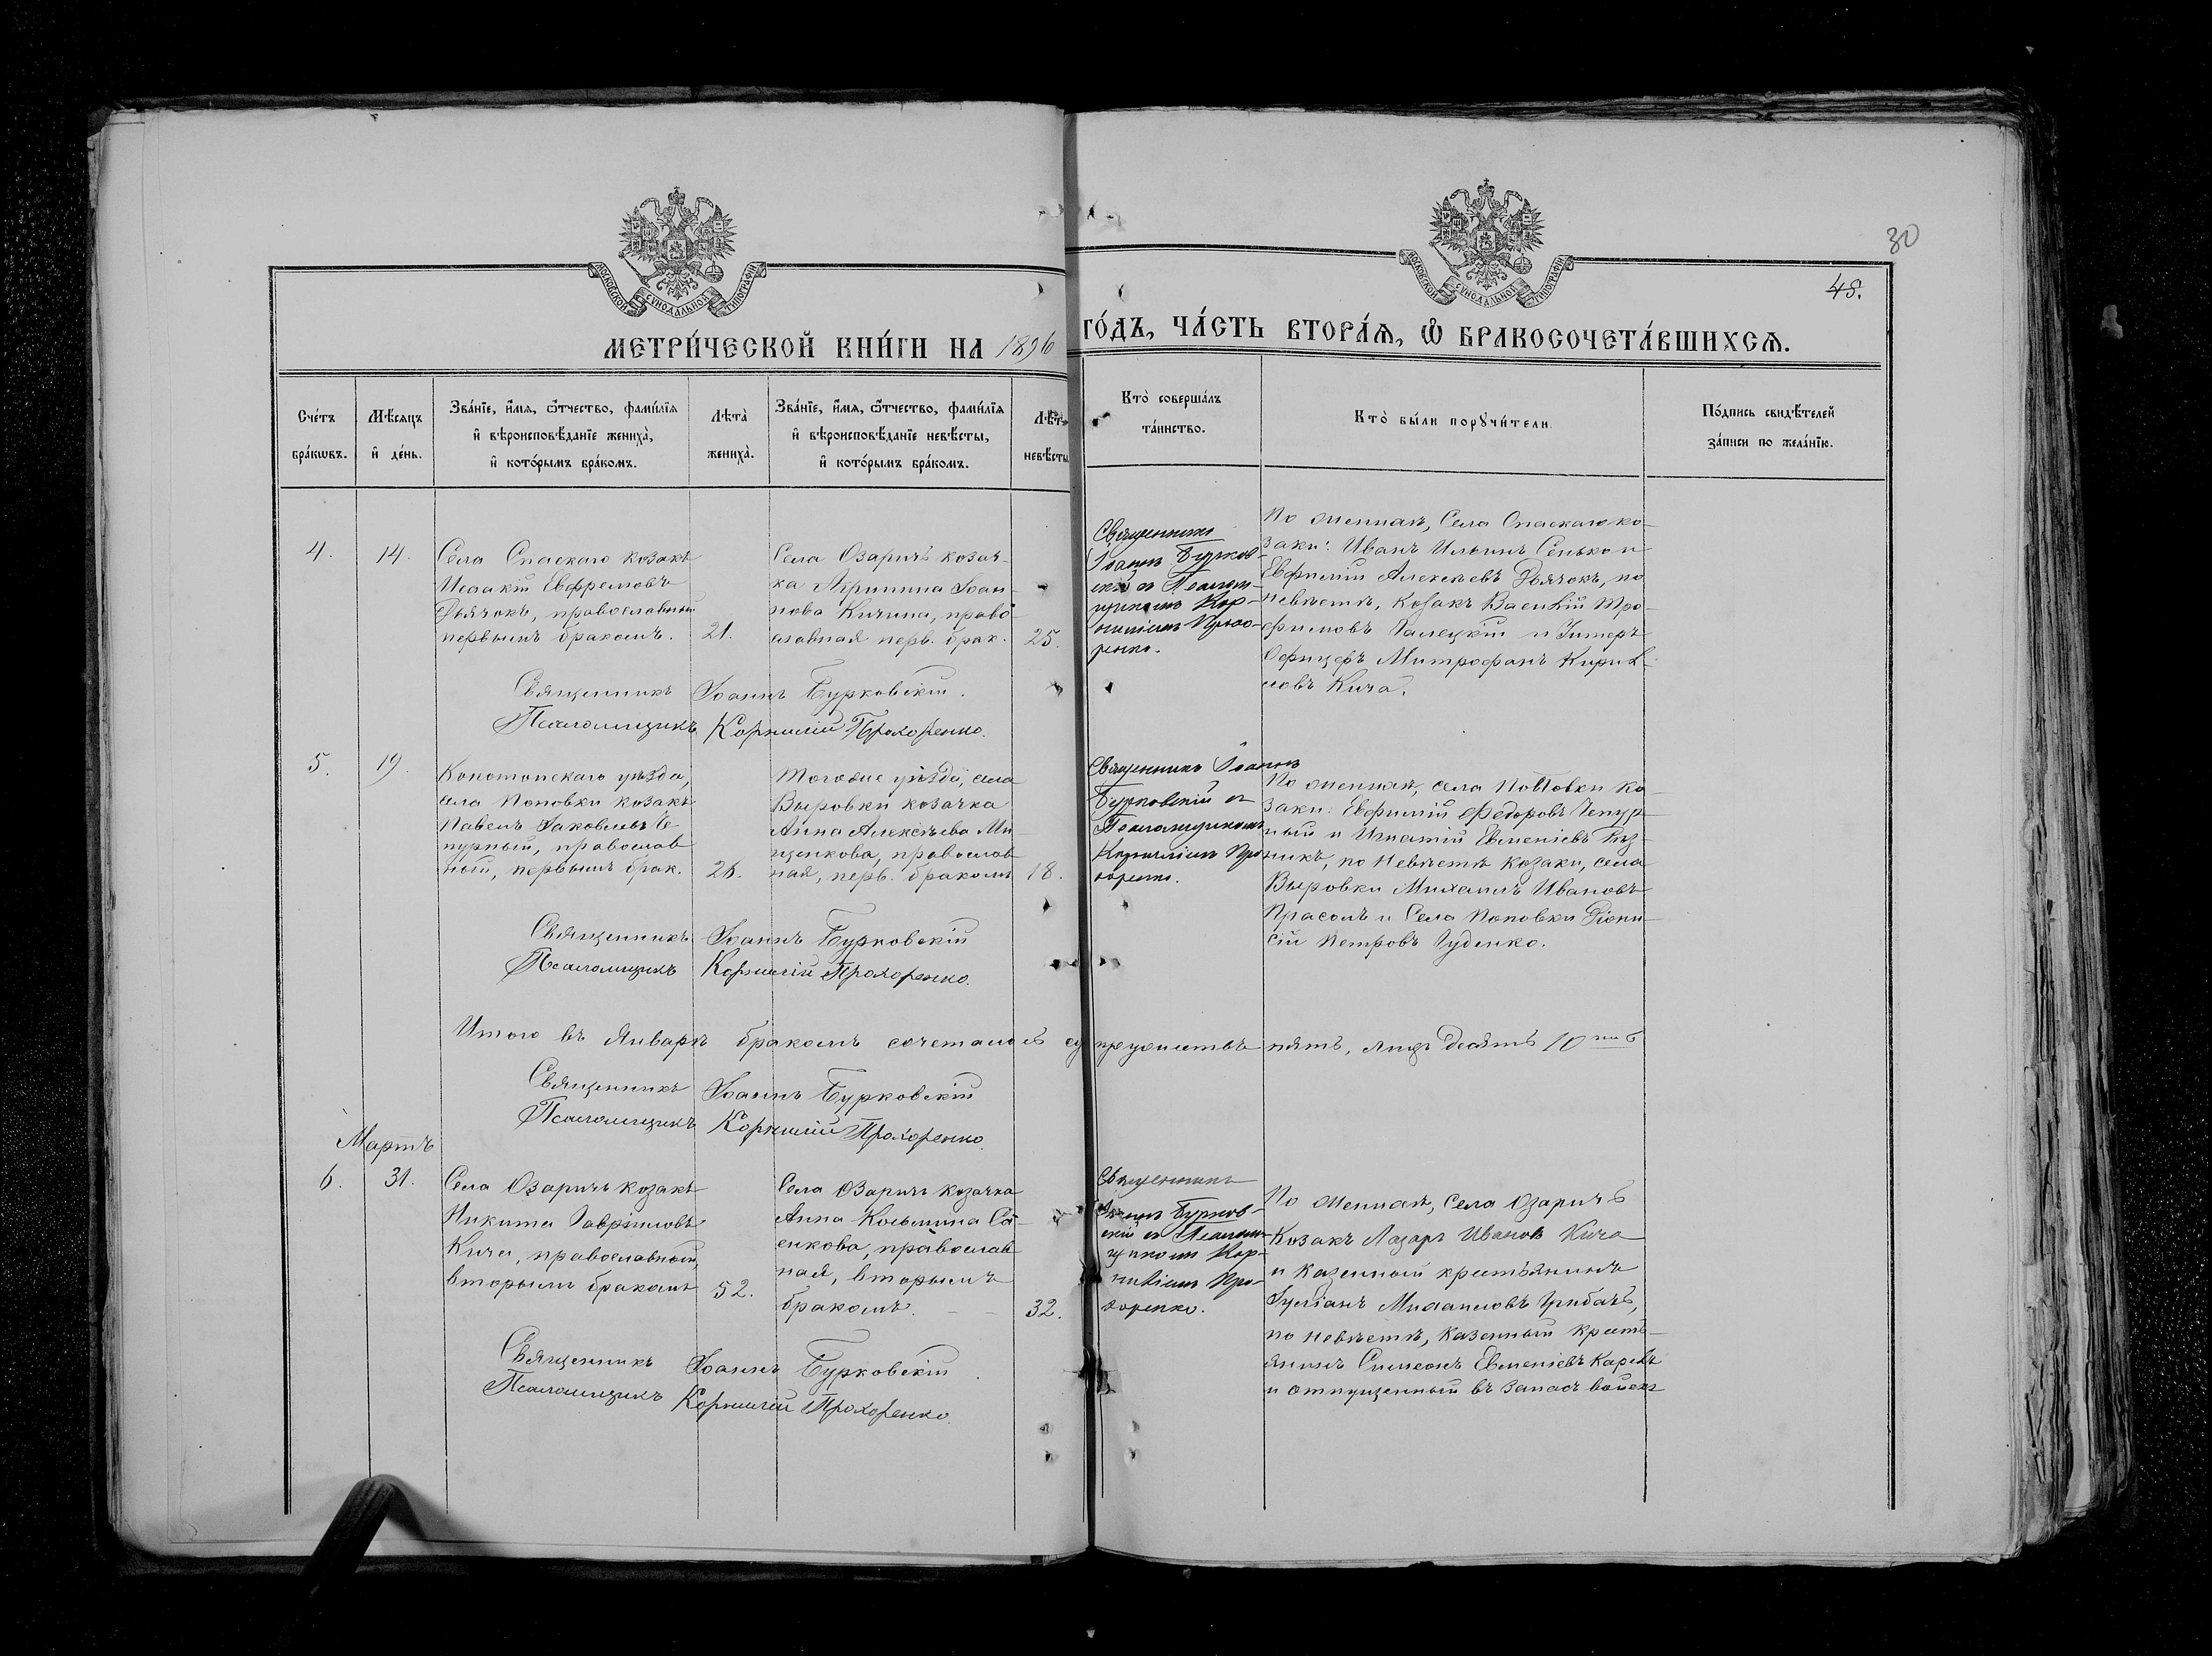 30
48.
МОСКОВСКОЙ СѴНОДАЛЬНОЙ ТИПОГРАФІИ
МОСКОВСКОЙ СѴНОДАЛЬНОЙ ТИПОГРАФІИ
МЕТРИ́ЧЕСКОЙ КНИ́ГИ НА 1896 ГО́ДЪ, ЧА́СТЬ ВТОРА́Ѧ, Ѽ БРАКОСОЧЕТА́ВШИХСѦ.
Сче́тъ
бра́кѡвъ.
Мѣ́сѧцъ
и҆ де́нь.
Зва́нїе, и҆́мѧ, ѻ҆́тчество, фами́лїѧ
и҆ вѣроисповѣ́данїе жениха̀,
и҆ кото́рымъ бра́комъ.
Лѣта̀
жениха̀.
Зва́нїе, и҆́мѧ, ѻ҆́тчество, фами́лїѧ
и҆ вѣроисповѣ́данїе невѣ́сты,
и҆ кото́рымъ бра́комъ.
Лѣта̀
невѣ́сты
Кто̀ соверша́лъ
та́инство.
Кто̀ бы́ли порꙋчи́тели.
По́дпись свидѣ́телей
за́писи по жела́нїю.
4.
14.
Села Спаскаго козакъ
Исаакій Евфремовъ
Дьячокъ, православный
первымъ бракомъ.
21.
Села Озаричъ козач-
ка Агрипина Іоан-
нова Кичина, право-
славная перв. брак.
25.
Священникъ
Іоаннъ Бурков-
скій съ Псалом-
щикомъ Кор-
ниліемъ Прохо-
ренко.
По женихѣ, Села Спаскаго ко-
заки: Иванъ Ильинъ Сенько и
Евфимій Алексѣевъ Дьячокъ, по
невѣстѣ, козакъ Василій Тро-
фимовъ Галецкій и Унтеръ
Офицеръ Митрофанъ Кирил-
ловъ Кича.
Священникъ Іоаннъ Бурковскій.
Псаломщикъ Корнилій Прохоренко.
5.
19.
Конотопскаго уѣзда,
села Поповки козакъ
Павелъ Іаковлевъ Че-
пурный, православ
ный, первымъ брак.
Тогоже уѣзда, села
Выровки козачка
Анна Алексѣева Ми-
щенкова, православ
ная, перв. бракомъ
18.
Священникъ Іоаннъ
Бурковскій съ
Псаломщикомъ
Корниліемъ Про
хоренко.
По женихѣ, села Поповки ко-
заки: Евфимій Федоровъ Чепур-
ный и Игнатій Евменіевъ Риз-
никъ, по Невѣстѣ козаки, села
Выровки Михаилъ Ивановъ
Прасолъ и Села Поповки Діони-
сій Петровъ Гуденко.
Священникъ Іоаннъ Бурковскій
Псаломщикъ Корнилій Прохоренко.
Итого въ Январѣ бракомъ сочеталось супружествъ пять, лицъ десять 10
Священникъ Іоаннъ Бурковскій
Псаломщикъ Корнилій Прохоренко.
Мартъ
6.
31.
Села Озаричъ козакъ
Никита Гавріиловъ
Кича, православный,
вторымъ бракомъ
52.
Села Озаричъ козачка
Анна Косьмина Са-
енкова, православ
ная, вторымъ
бракомъ.
32.
Священникъ
Іоаннъ Бурков-
скій съ Псалом-
щикомъ Кор-
ниліемъ Про-
хоренко.
По женихѣ, Села Озаричъ
Козакъ Лазарь Ивановъ Кича
и казенный крестьянинъ
Іуліанъ Михаиловъ Грибачъ,
по невѣстѣ, казенный крестъ-
янинъ Симеонъ Евменіевъ
и отпущенный въ запасъ войскъ
Священникъ Іоаннъ Бурковскій.
Псаломщикъ Корнилій Прохоренко.